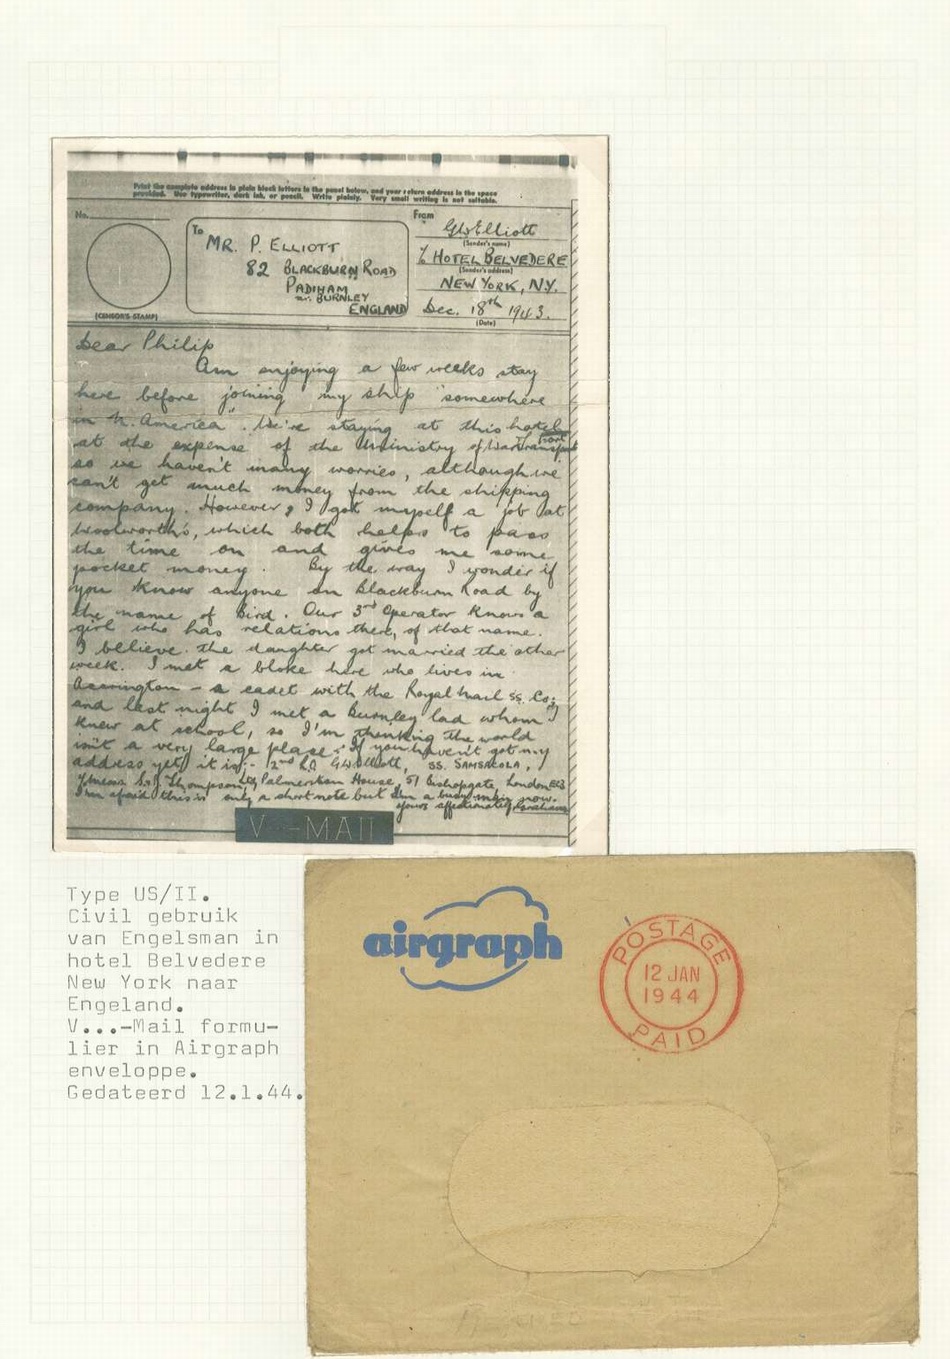 Print the complete address in plain block letters in the panel below, and your return address in the space
provided. Use typewriter, dark ink, or pencil. Write plainly. Very small writing is not suitable.
No.
(CENSOR'S STAMP)
To
MR. P. ELLIOTT
82 BLACKBURN ROAD
PADIHAM
nr. BURNLEY
ENGLAND
From
GWElliott
(Sender's name)
℅ HOTEL BELVEDERE
(Sender's address)
NEW YORK, N.Y.
Dec. 18th 1943.
(Date)
Dear Philip
Am enjoying a few weeks stay
here before joining my ship "somewhere
in N. America". We're staying at this hotel
at the expense of the Ministry of War Transport
so we haven't many worries, although we
can't get much money from the shipping
company. However, I got myself a job at
Woolworth's, which both helps to pass
the time on and gives me some
pocket money. By the way I wonder if
you know anyone on Blackburn Road by
the name of Bird. Our 3rd Operator knows a
girl who has relations there, of that name.
I believe the daughter got married the other
week. I met a bloke here who lives in
Accrington - a cadet with the Royal Mail ss. Co;
and last night I met a Burnley lad whom I
knew at school, so I'm thinking the world
isn't a very large place. If you haven't got my
address yet, it is:- 2nd R.O. GWElliott, SS. SAMSACOLA,
Thompson Palmerston House, 51 Bishopgate, London EC3
I'm afraid this is only a short note but I'm a busy man now.
Yours affectionately Graham
V···-MAIL
Type US/II.
Civil gebruik
van Engelsman in
hotel Belvedere
New York naar
Engeland.
V...-Mail formu-
lier in Airgraph
enveloppe.
Gedateerd 12.1.44.
airgraph
POSTAGE
12 JAN
1944
PAID